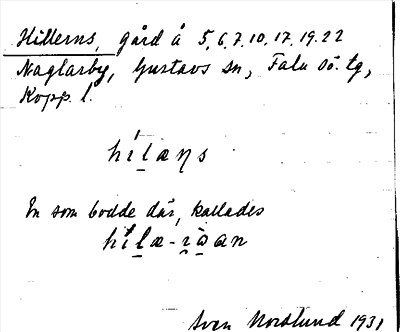 Hillerns, gård å 5,6,7,10,17,19,22
Naglarby, Gustavs sn, Falu sö. tg,
Kopp. l.
hilæṇs
En som bodde där, kallades
Sven Norslund 1931